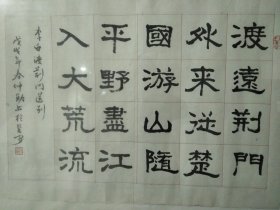 渡遠荆門
外来従楚
國游山隨
平野盡江
入大荒流
李白渡荆門送别
戊戌年